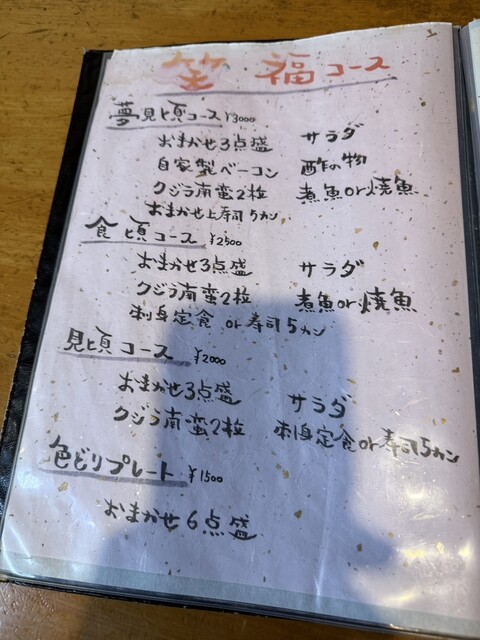 笑福コース
夢見頃コース ¥3000
おまかせ3点盛 サラダ
自家製ベーコン 酢の物
クジラ南蛮2粒 煮魚or焼魚
おまかせ上寿司5カン
食頃コース ¥2500
おまかせ3点盛 サラダ
クジラ南蛮2粒 煮魚or焼魚
刺身定食 or 寿司5カン
見頃コース ¥2000
おまかせ3点盛 サラダ
クジラ南蛮2粒 刺身定食or寿司5カン
色どりプレート ¥1500
おまかせ6点盛